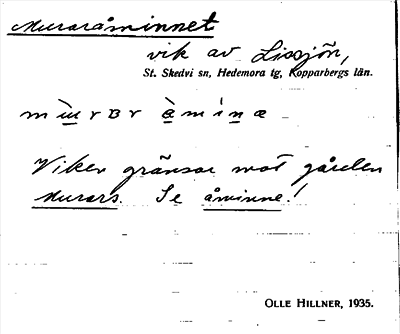 Muraråminnet
vik av Lissjön,
St. Skedvi sn, Hedemora tg, Kopparbergs län.
Viken gränsar mot gården
Murars. Se åminne!
OLLE HILLNER, 1935.